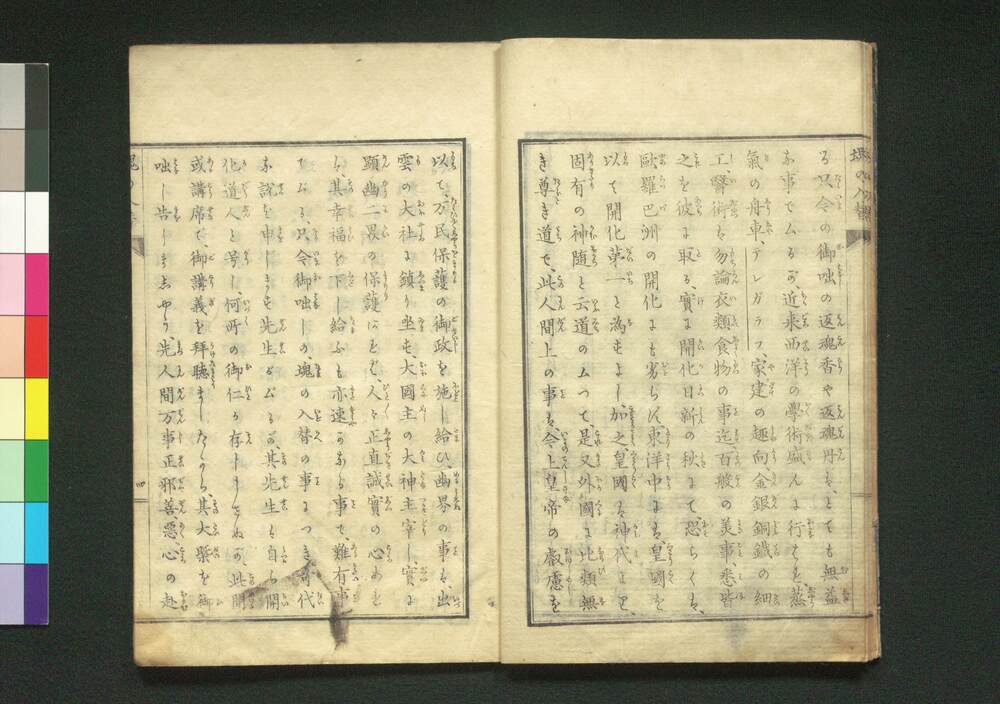 る只今の御咄の返魂香や返魂丹は、とても無益
な事でムるが、近来西洋の學術盛んに行ても、蒸
氣の舟車、テレガラフ、家建の趣向、金銀銅鐵の細
工、醫術は勿論衣類食物の事迄百般の美事悉皆
之を彼に取る、實に開化日新の秋にて、恐らくは、
歐羅巴洲の開化にも劣らじ、東洋中にも、皇國を
以て開化第一と為もよし、加之、皇國は神代より、
固有の神随と云道のムつて、是又外國に比類無
き尊き道で、此人間上の事は、今上皇帝の叡慮を
以て万民保護の御政を施し給ひ、幽界の事は、出
雲の大社に鎮り坐す、大國主の大神主宰し、實に
顕幽二界の保護にて、人々正直誠實の心あれ
ば、其幸福を下し給ふも亦速かなる事で、難有事
でムる、只今御咄しの、魂の入替の事につき、
お説を申しまする先生がムるが、其先生も自ら開
化道人と号し、何所の御仁か存じませぬが、此間
或講席で、御講義を拝聴ましたから、其大槩を御
咄し告しましやう、先人間万事正邪善悪心の赴
四